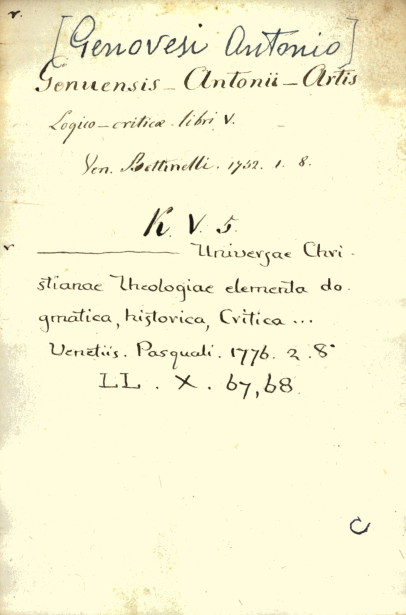 v.
[Genovesi Antonio]
Genuensis - Antonii - Artis
Logico-criticæ libri V. -
Ven. Bettinelli. 1752. 1. 8.
K. V. 5.
v ——— Universae Chri-
stianae Theologiae elementa do-
gmatica, historica, Critica ...
Venetiis. Pasquali. 1776. 2. 8°
LL. X. 67, 68.
C